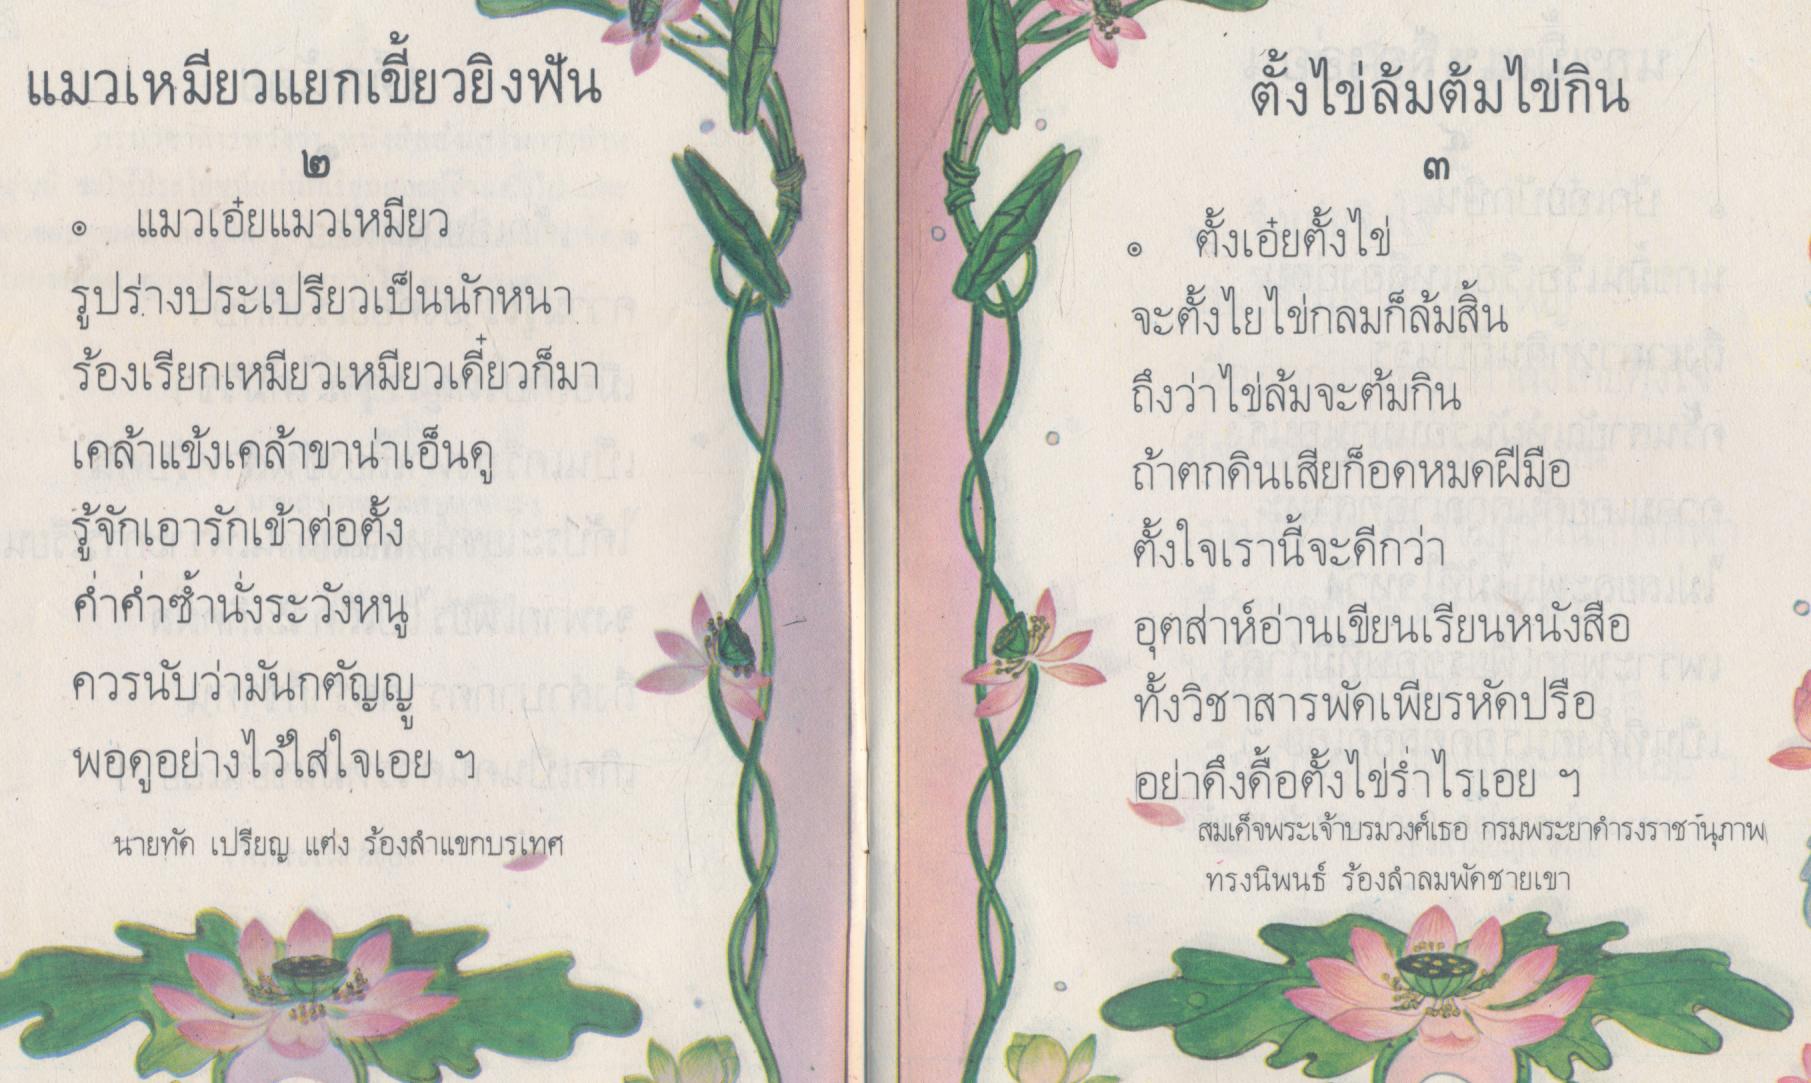 แมวเหมียวแยกเขี้ยวยิงฟัน
๒
๏ แมวเอ๋ยแมวเหมียว
รูปร่างประเปรียวเป็นนักหนา
ร้องเรียกเหมียวเหมียวเดี๋ยวก็มา
เคล้าแข้งเคล้าขาน่าเอ็นดู
รู้จักเอารักเข้าต่อตั้ง
ค่ำค่ำซ้ำนั่งระวังหนู
ควรนับว่ามันกตัญญู
พอดูอย่างไว้ใส่ใจเอย ฯ
นายทัด เปรียญ แต่ง ร้องลำแขกบรเทศ
ตั้งไข่ล้มต้มไข่กิน
๓
๏ ตั้งเอ๋ยตั้งไข่
จะตั้งไยไข่กลมก็ล้มสิ้น
ถึงว่าไข่ล้มจะต้มกิน
ถ้าตกดินเสียก็อดหมดฝีมือ
ตั้งใจเรานี้จะดีกว่า
อุตส่าห์อ่านเขียนเรียนหนังสือ
ทั้งวิชาสารพัดเพียรหัดปรือ
อย่าดึงดื้อตั้งไข่ร่ำไรเอย ฯ
สมเด็จพระเจ้าบรมวงศ์เธอ กรมพระยาดำรงราชานุภาพ
ทรงนิพนธ์ ร้องลำลมพัดชายเขา